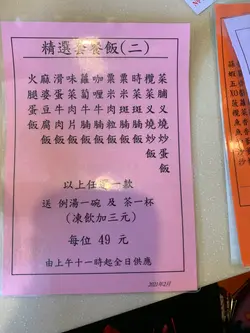 精選套餐飯(二)
菜脯叉燒炒蛋飯
欖菜叉燒炒飯
時菜斑腩飯
粟米斑腩飯
粟米肉粒飯
咖喱牛腩飯
蘿蔔牛腩飯
味菜肉片飯
滑蛋牛肉飯
麻婆豆腐飯
火腿蛋飯
以上任選一款
送 例湯一碗 及 茶一杯
(凍飲加三元)
每位 49 元
由上午十一時起全日供應
2021年2月